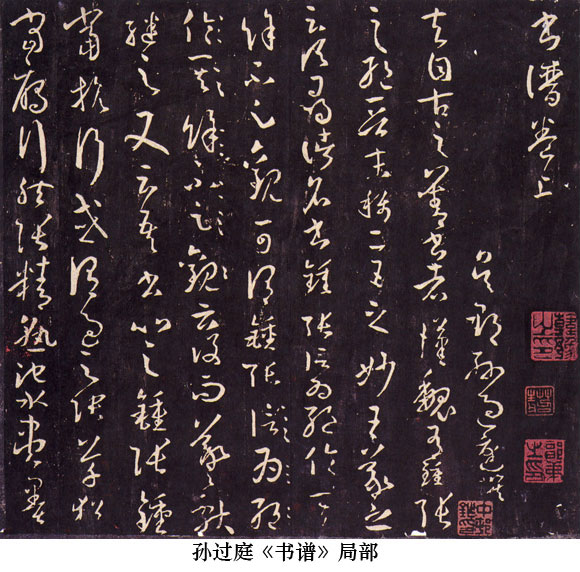 書譜卷上
吳郡孫過庭撰
夫自古之善書者漢魏有鍾張
之絕晉末稱二王之妙王羲之
云頃尋諸名書鍾張信為絕倫其
餘不足觀可謂鍾張信為絕
倫其餘不足觀云沒而羲獻
繼之又云吾書比之鍾張鍾
當抗行或謂過之張草猶
當雁行然張精熟池水盡墨
孙过庭《书谱》局部